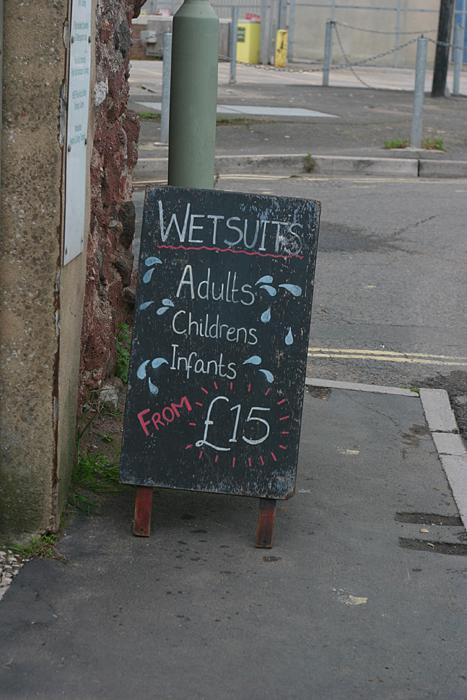 WETSUITS
Adults
Childrens
Infants
FROM £15